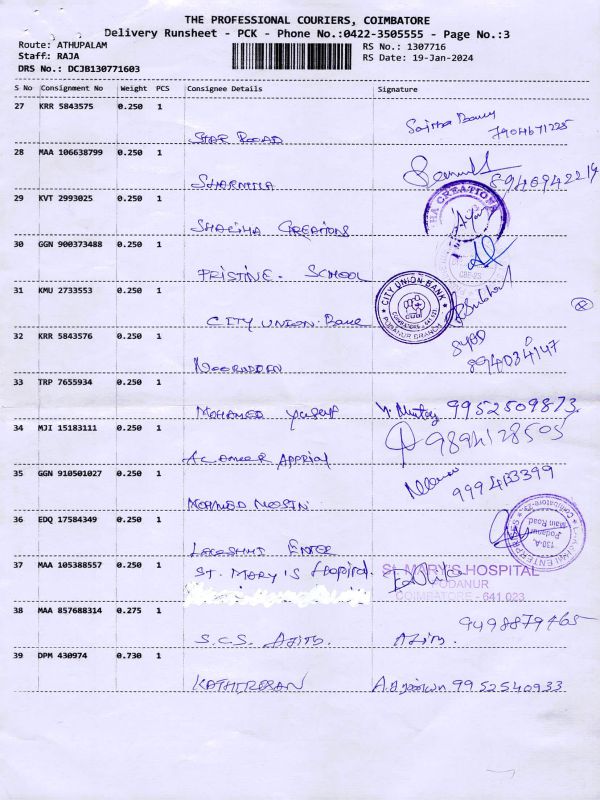 THE PROFESSIONAL COURIERS, COIMBATORE
Delivery Runsheet - PCK - Phone No.:0422-3505555 - Page No.:3
Route: ATHUPALAM
RS No.: 1307716
Staff: RAJA
RS Date: 19-Jan-2024
DRS No.: DCJB130771603
S No Consignment No Weight PCS Consignee Details Signature
27 KRR 5843575 0.250 1
7904671225
28 MAA 106638799 0.250 1
SHARMILA
29 KVT 2993025 0.250 1
CREATIONS
CREATIONS
30 GGN 900373488 0.250 1
PRISTINE. SCHOOL
31 KMU 2733553 0.250 1
CITY UNION BANK
COIMBATORE - 641 023
PODANUR BRANCH
CITY UNION. Bank
32 KRR 5843576 0.250 1
33 TRP 7655934 0.250 1
MOHAMED Yusuf
9952509873
34 MJI 15183111 0.250 1
9894128505
AL AMEER
35 GGN 910501027 0.250 1
MOHMED MOSIN
36 EDQ 17584349 0.250 1
ENTERPRISES
130-A,
Podanur
Main Road
Coimbatore-23.
LAKSHMI
37 MAA 105388557 0.250 1
ST. MARY'S Hospital.
ST. MARY'S HOSPITAL
PODANUR
COIMBATORE - 641 023
38 MAA 857688314 0.275 1
9498879465
S.C.S. AJITH. AJITH.
39 DPM 430974 0.730 1
KATHIRESAN
9952540933